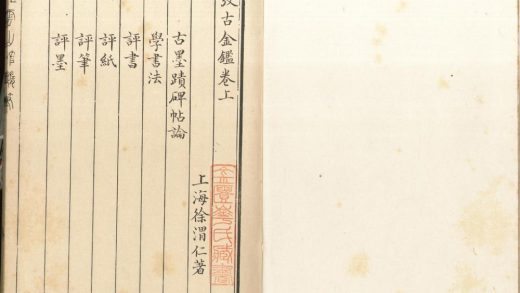 攷古金鑑卷上
上海徐渭仁著
古墨蹟碑帖論
學書法
評書
評紙
評筆
評墨
氏藏書